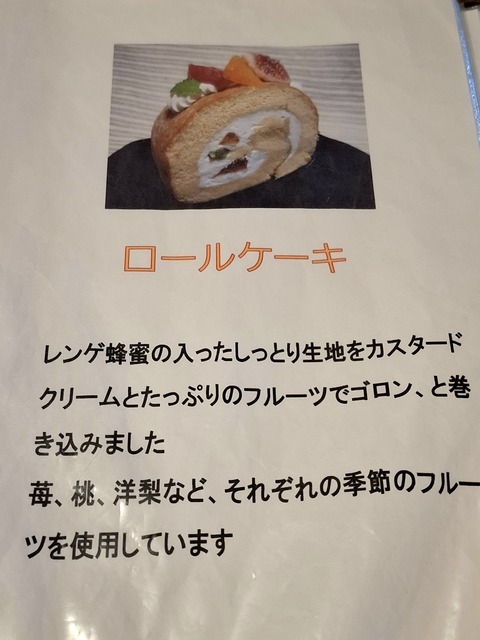 ロールケーキ
レンゲ蜂蜜の入ったしっとり生地をカスタード
クリームとたっぷりのフルーツでゴロン、と巻
き込みました
苺、桃、洋梨など、それぞれの季節のフルー
ツを使用しています